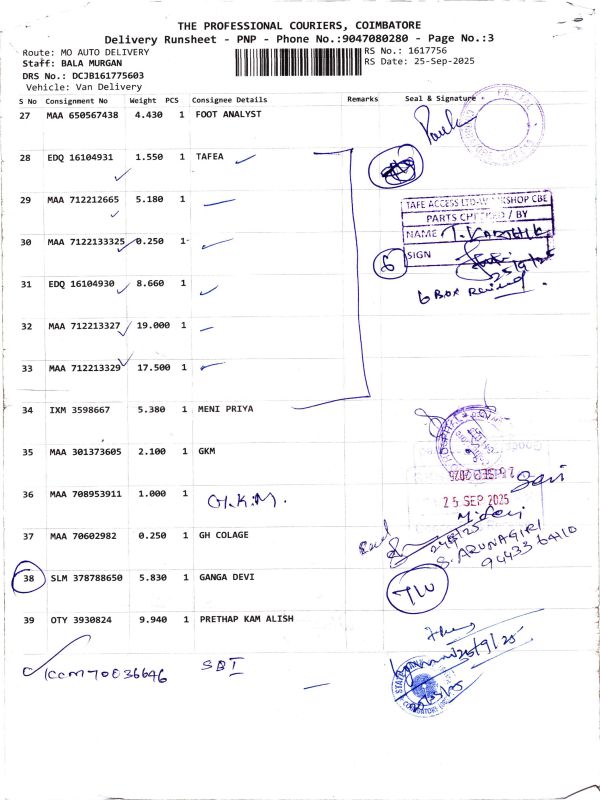 THE PROFESSIONAL COURIERS, COIMBATORE
Delivery Runsheet - PNP - Phone No.:9047080280 - Page No.:3
Route: MO AUTO DELIVERY RS No.: 1617756
Staff: BALA MURGAN RS Date: 25-Sep-2025
DRS No.: DCJB161775603
Vehicle: Van Delivery
S No Consignment No Weight PCS Consignee Details Remarks Seal & Signature
27 MAA 650567438 4.430 1 FOOT ANALYST
28 EDQ 16104931 1.550 1 TAFEA
29 MAA 712212665 5.180 1
TAFE ACCESS LTD-WORKSHOP CBE
PARTS CHECKED / BY
NAME T. KARTHIK
30 MAA 7122133325 0.250 1
6 SIGN
25/9/25
31 EDQ 16104930 8.660 1
6 BOX
32 MAA 712213327 19.000 1
33 MAA 712213329 17.500 1
34 IXM 3598667 5.380 1 MENI PRIYA
35 MAA 301373605 2.100 1 GKM
36 MAA 708953911 1.000 1 G.K.M.
25 SEP 2025
37 MAA 70602982 0.250 1 GH COLAGE
S. ARUNAGIRI
94433 64110
38 SLM 378788650 5.830 1 GANGA DEVI
39 OTY 3930824 9.940 1 PRETHAP KAM ALISH
25/9/25
SBI